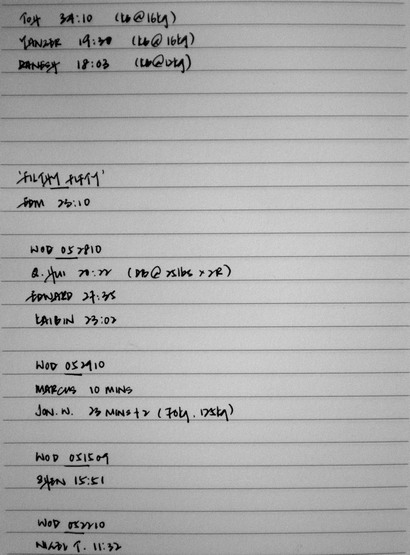 TOH 39:10 (KB @ 16kg)
19:30 (KB @ 16kg)
DANESH 18:03 (KB @ 12kg)
'FILTHY FIFTY'
EDM 25:10
WOD 052810
Q. HUI 20:22 (DB @ 25lbs x 2R)
EDWARD 27:35
KAIBIN 23:02
WOD 052910
MARCUS 10 MINS
JON. W. 23 MINS + 2 (70kg, 125kg)
WOD 051509
SHEN 15:51
WOD 052210
T. 11:32